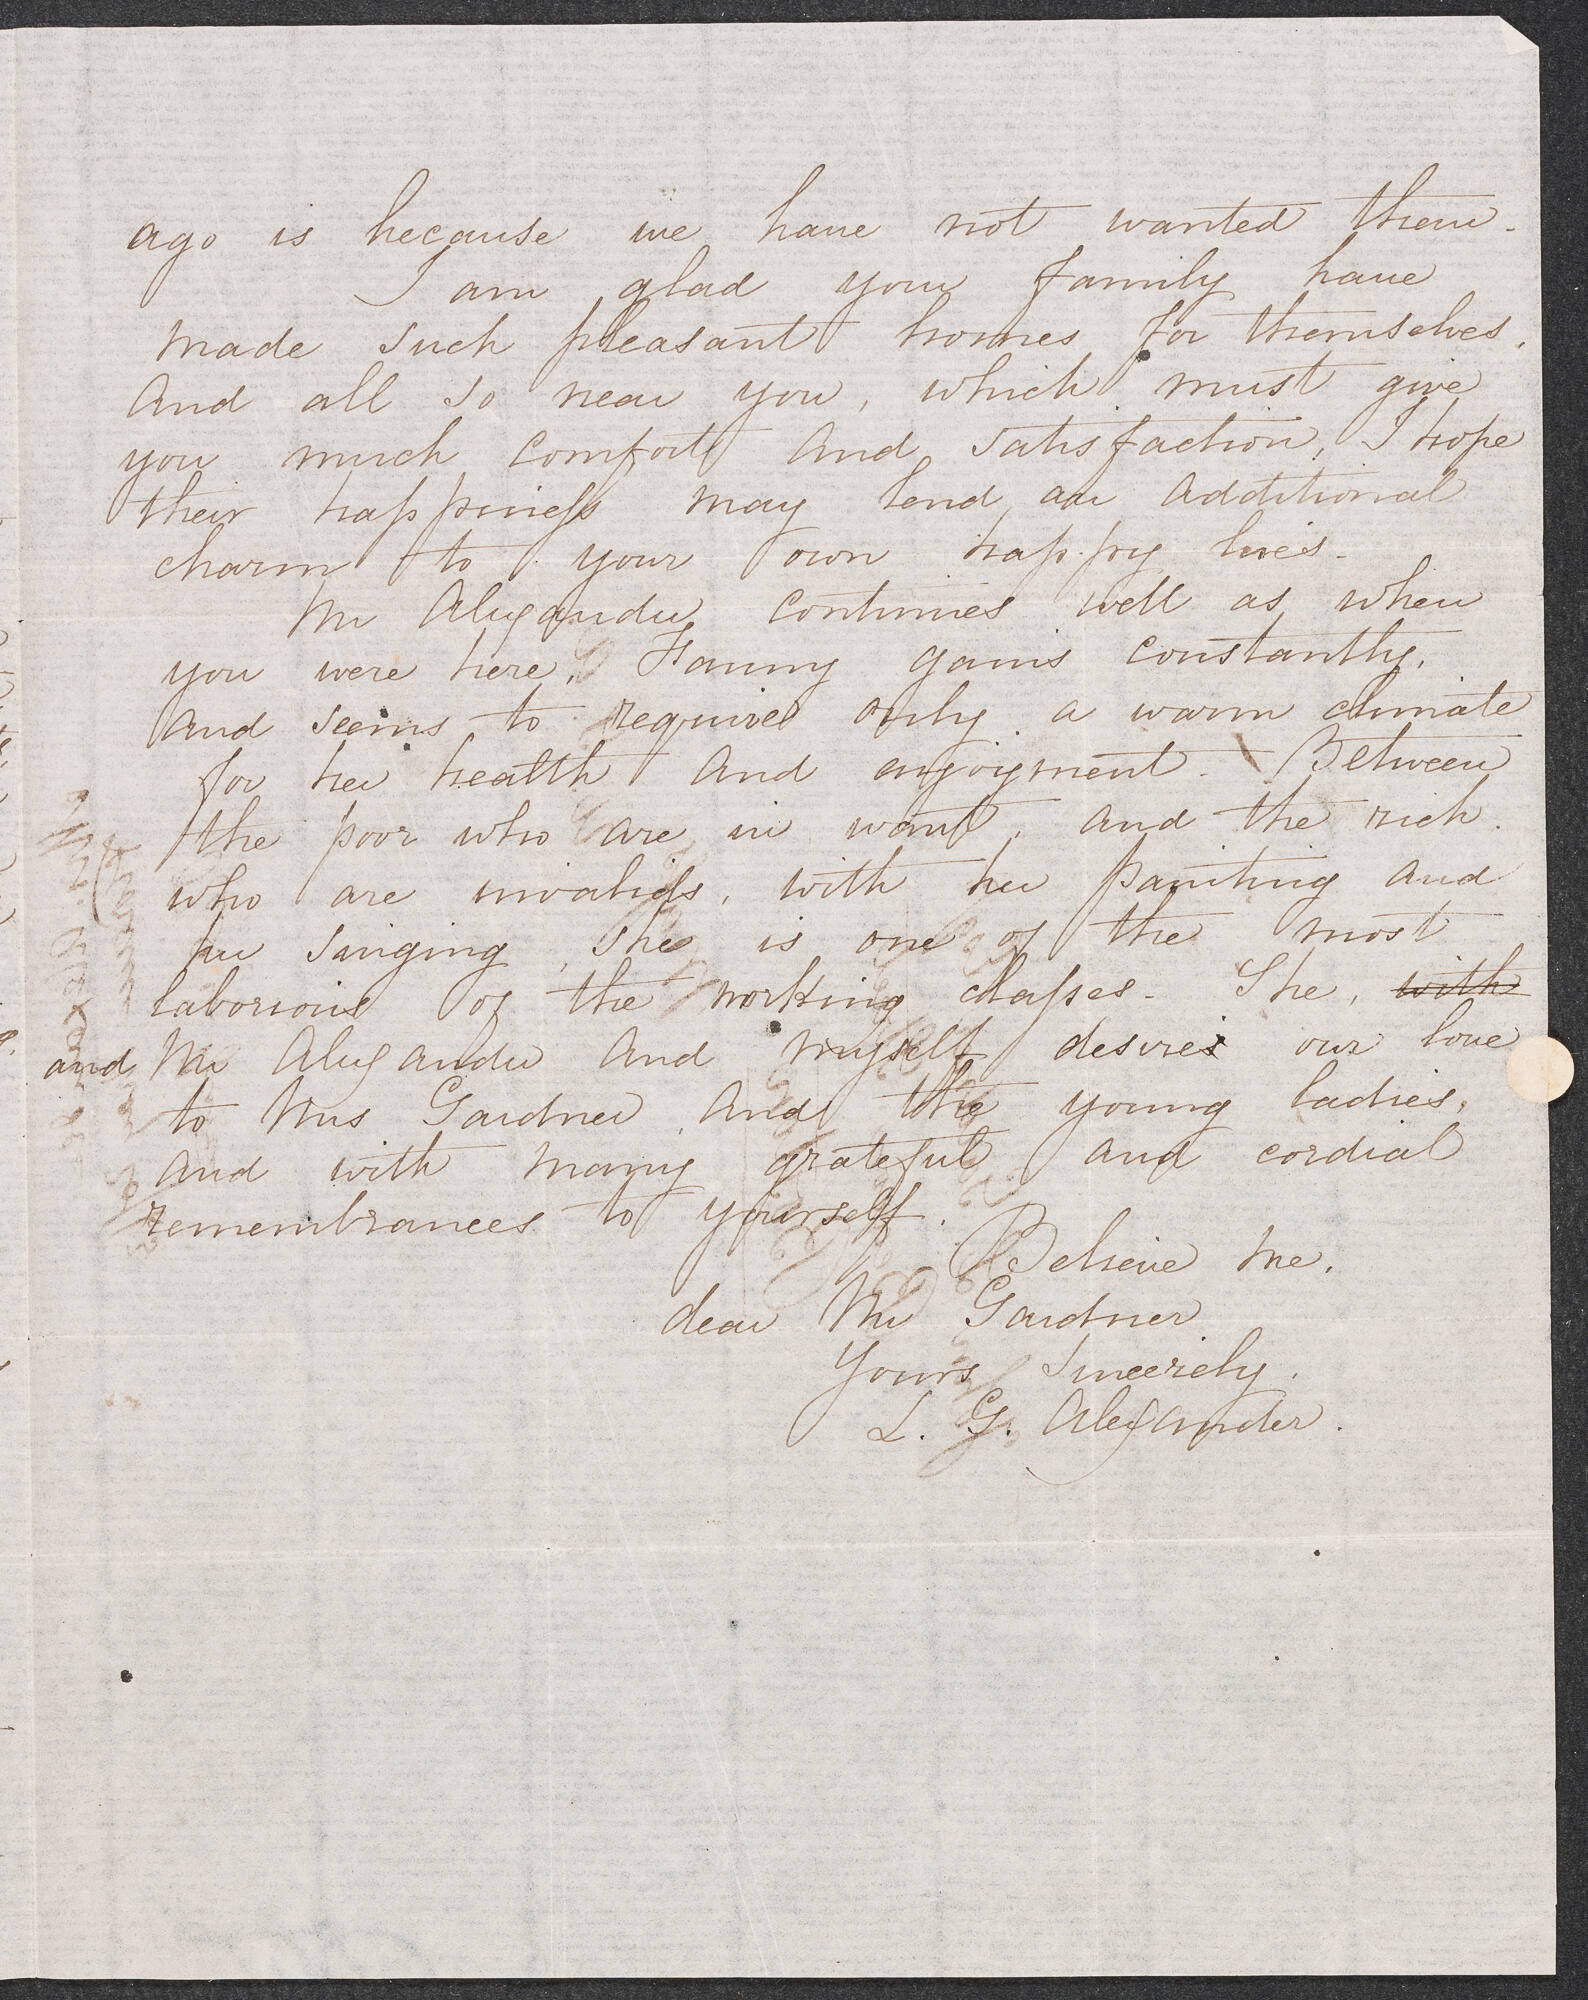 ago is because we have not wanted them.
I am glad your family have
made such pleasant homes for themselves,
And all so near you, which must give
you much comfort and satisfaction, I hope
their happiness may lend an additional
charm to your own happy lives.
Mr Alexander continues well as when
you were here. Fanny gains constantly,
and seems to require only a warm climate
for her health and enjoyment. Between
the poor who are in want, and the rich
who are invalids, with her painting and
her singing, she is one of the most
laborious of the working classes. She, with
and Mr Alexander and myself desires our love
to Mrs Gardner, and the young ladies,
and with many grateful and cordial
remembrances to yourself.
Believe me,
dear Mr Gardner
Yours Sincerely.
L. G. Alexander.